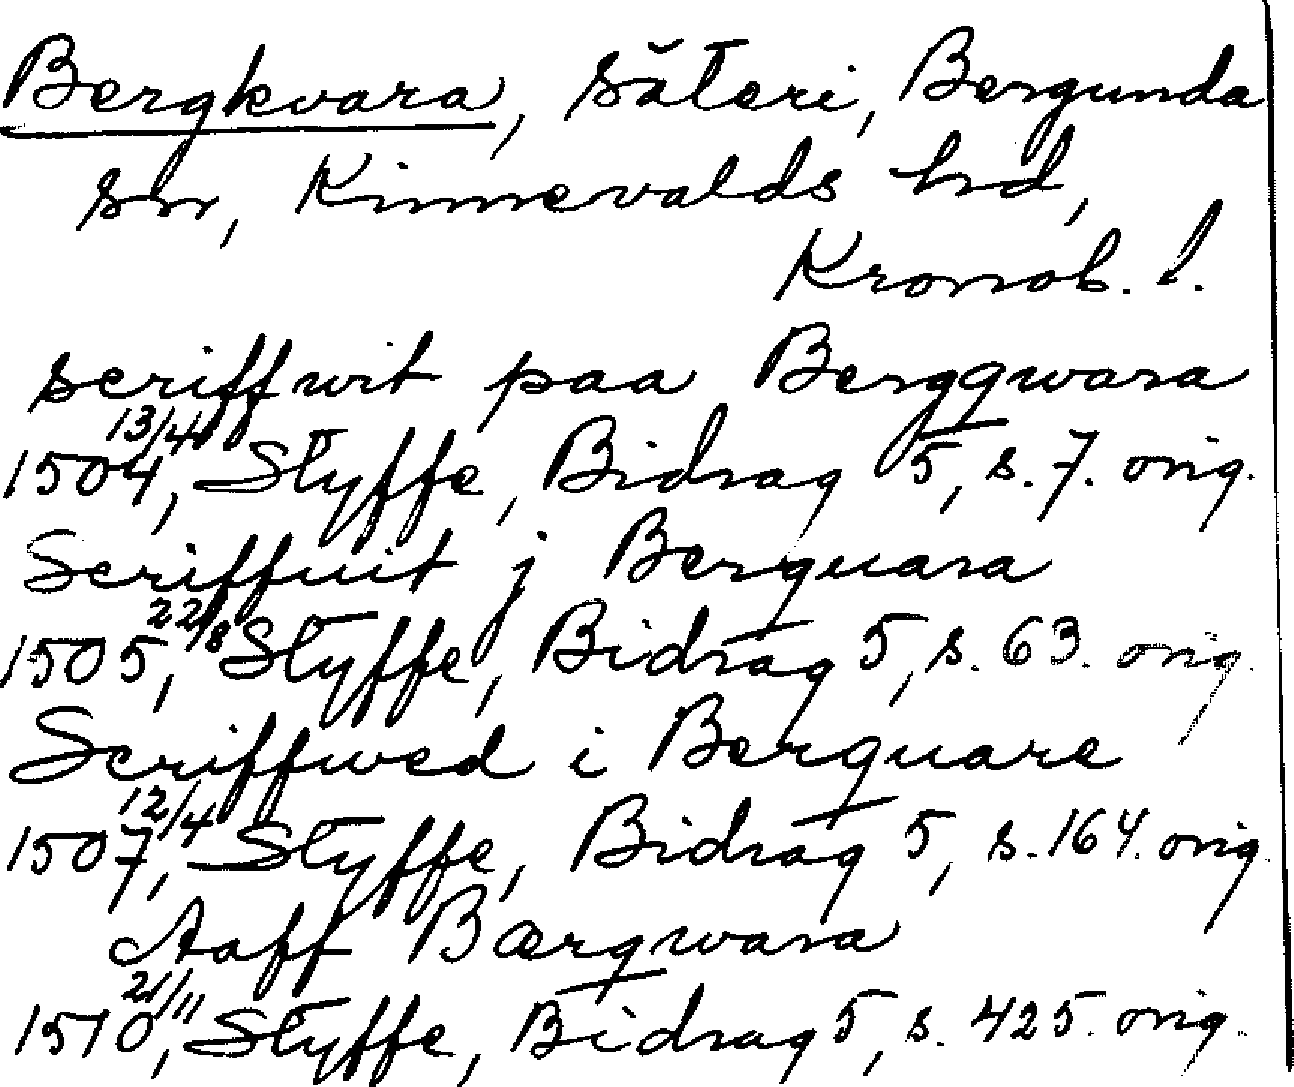 Bergkvara, säteri, Bergunda
sn, Kinnevalds hd,
Kronob. l.
scriffwit paa Bergqwara
1504 13/4, Styffe, Bidrag 5, s. 7. orig.
Scriffuit j Berquara
1505 22/8, Styffe, Bidrag 5, s. 63. orig.
Scriffwed i Berquare
1507 12/4, Styffe, Bidrag 5, s. 164. orig.
Aaff Bærqwara
1510 21/11, Styffe, Bidrag 5, s. 425. orig.